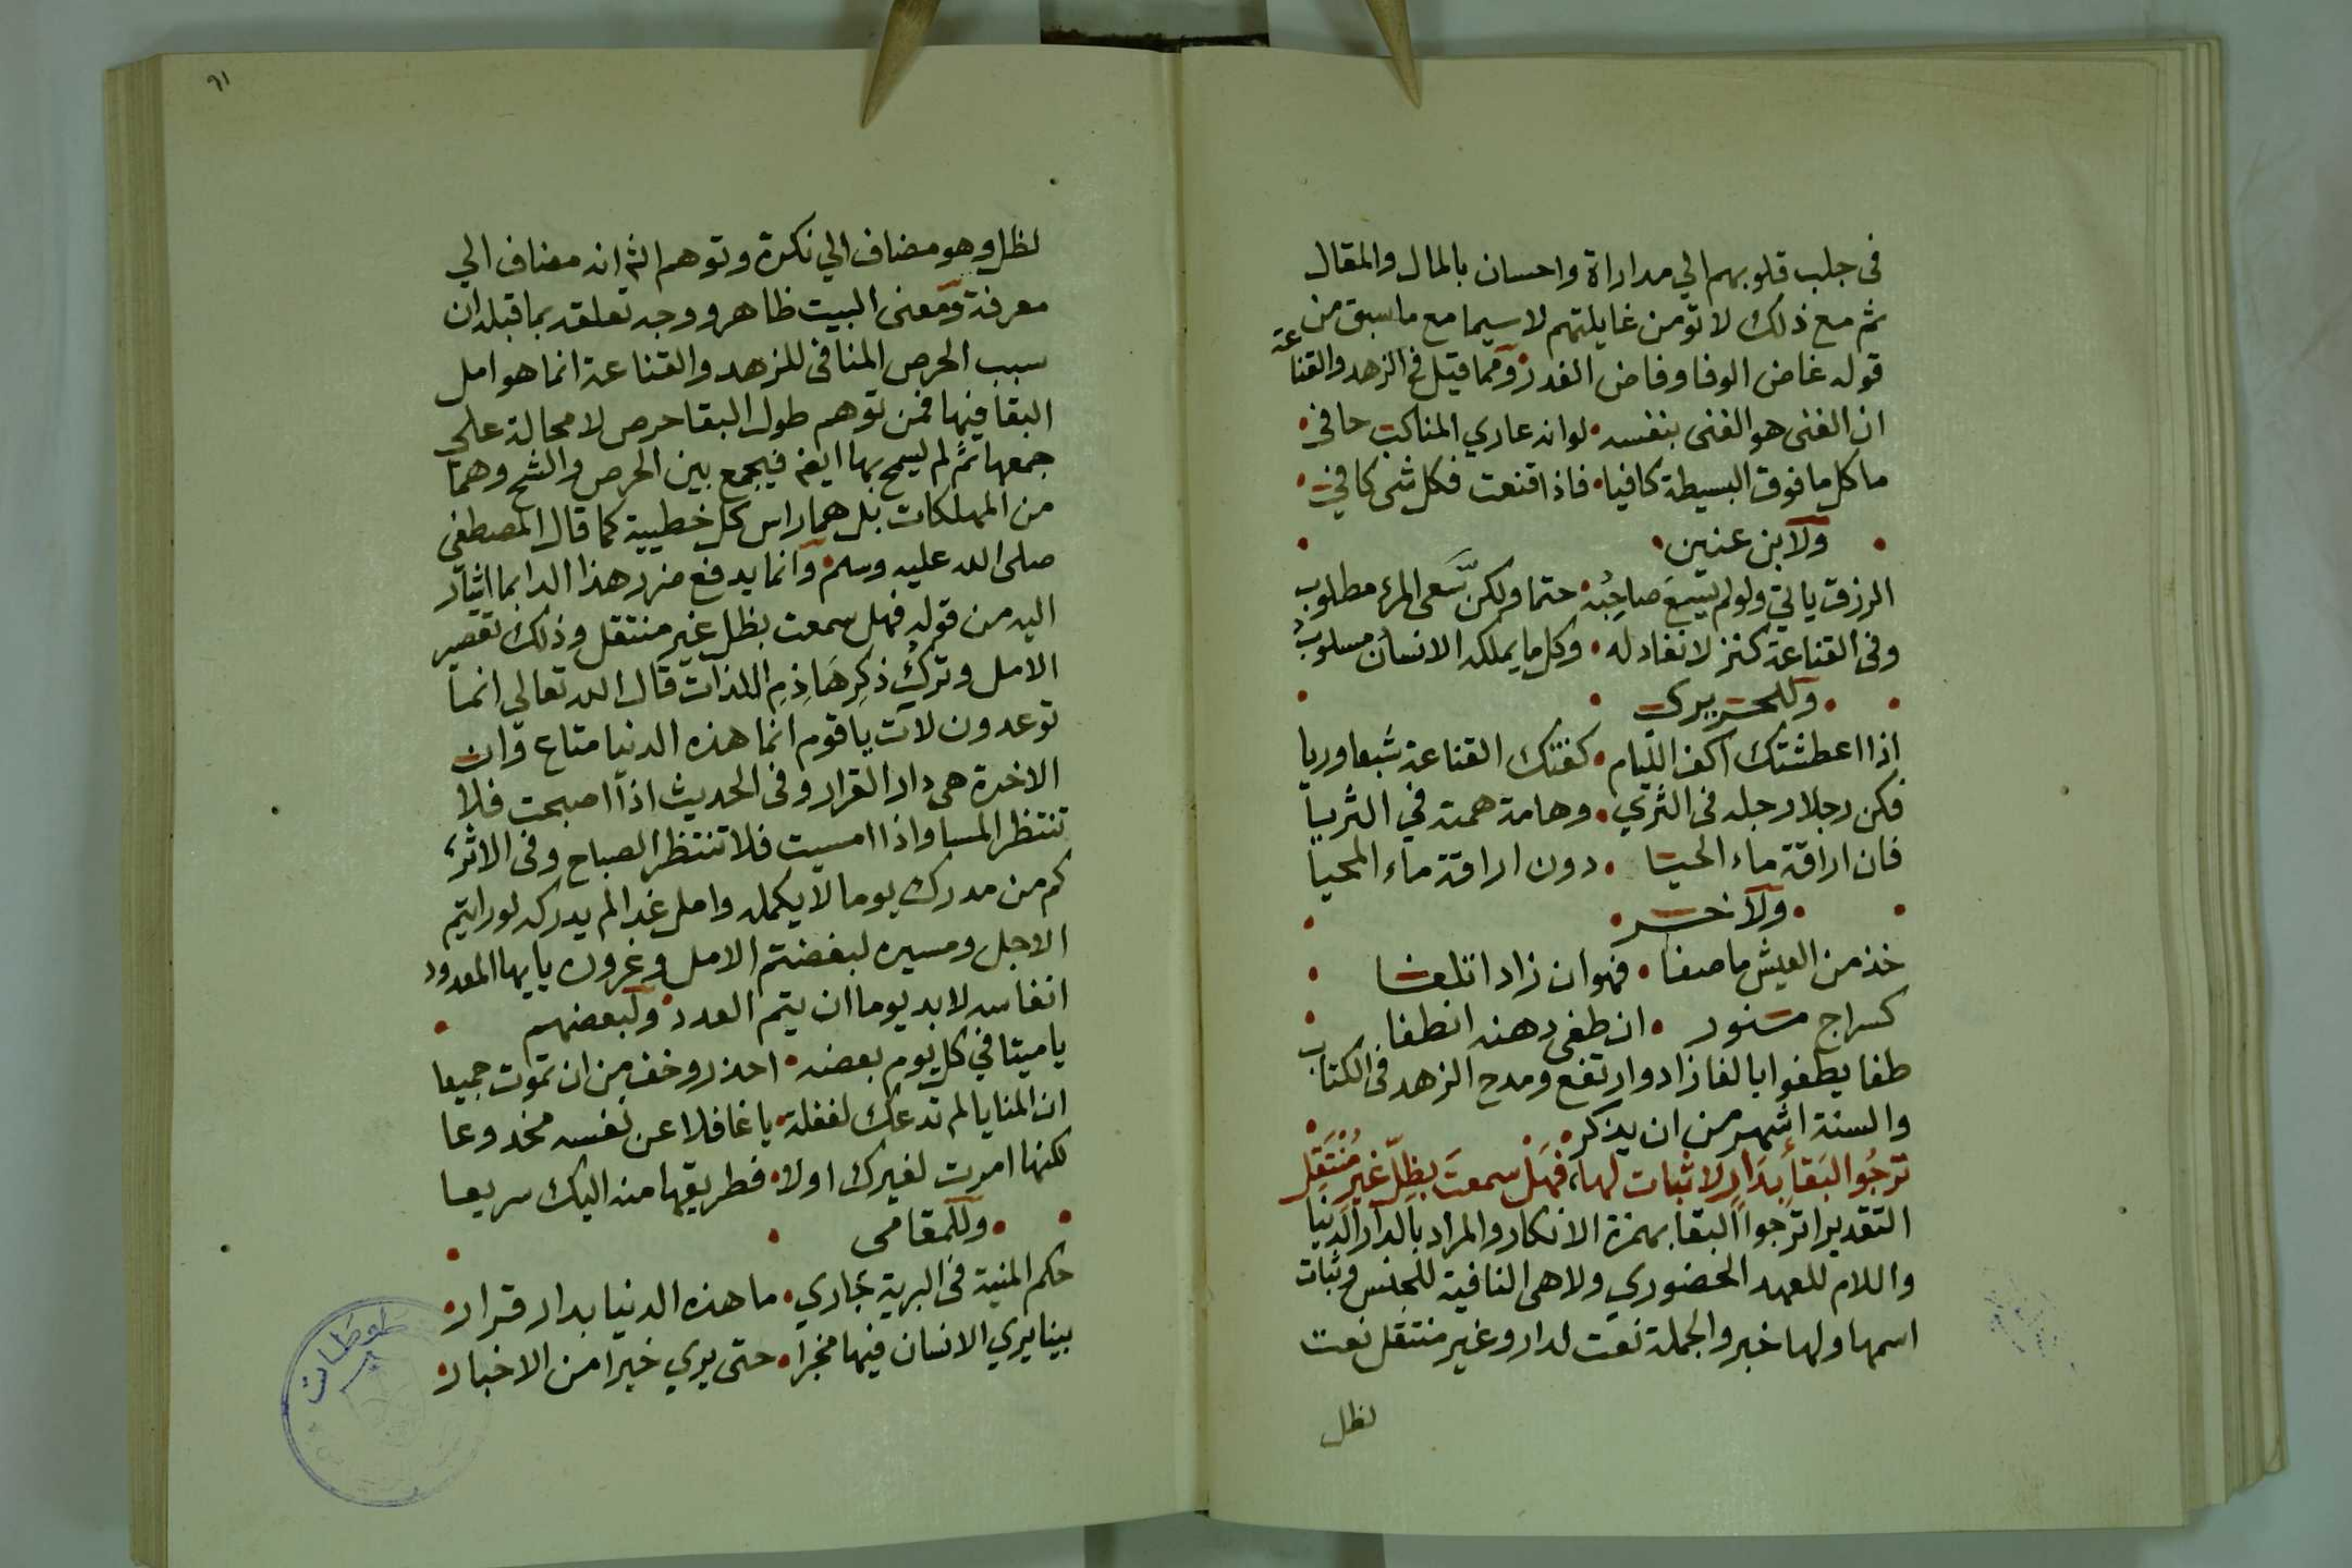 في جلب قلوبهم الي مداراة واحسان بالمال والمقال
ثم مع ذلك لا تومن غايلتهم لا سيما مع ما سبق من
قوله غاض الوفا وفاض الغدر ومما قيل في الزهد والقناعة
ان الغنى هو الغنى بنفسه لو انه عاري المناكب حافي
ما كل ما فوق البسيطة كافيا فاذا قنعت فكل شى كافي
ولابن عنين
الرزق ياتي ولو لم يسع صاحبُه حتما ولكن سَعى المرء مطلوب
وفى القناعة كنز لا نفاد له وكل ما يملكه الانسان مسلوبُ
وللحريري
اذا اعطشتك اكف اللئام كفتك القناعة شبعا وريا
فكن رجلا رجله فى الثري وهامة همته في الثريا
فان اراقة ماء الحيا دون اراقة ماء المحيا
ولاخر
خذ من العيش ما صفا فهو ان زاد اتلفا
كسراج منور ان طفى دهنه انطفا
طفا يطفوا بالفا زاد وارتفع ومدح الزهد فى الكتاب
والسنة اشهر من ان يذكر
ترجُوا البَقأَ بدَارٍ لا ثبات لها، فهَل سمعتَ بظِلّ غيرِ مُنْتَقِل
التقدير اترجوا البقا بهمزة الانكار والمراد بالدار الدنيا
واللام للعهد الحضوري ولا هى النافية للجنس وثبات
اسمها ولها خبر والجملة نعت لدار وغير منتقل نعت
لظل
٦١
لظل وهو مضاف الي نكرة وتوهم الثم انه مضاف الي
معرفة ومعنى البيت ظاهر ووجه تعلقه بما قبله ان
سبب الحرص المنافى للزهد والقناعة انما هو امل
البقا فيها فمن توهم طول البقا حرص لا محالة على
جمعها ثم لم يسمح بها ايضا فيجمع بين الحرص والشح وهما
من المهلكات بل هما راس كل خطيية كما قال المصطفى
صلى الله عليه وسلم وانما يدفع ضرر هذا الدا بما اشار
اليه من قوله فهل سمعت بظل غير منتقل وذلك تقصير
الامل وترك ذكر هَاذِمِ اللذات قال الله تعالي انما
توعدون لآت يا قوم انما هذه الدنيا متاع وان
الاخرة هى دار القرار وفى الحديث اذا اصبحت فلا
تنتظر المسا واذا امسيت فلا تنتظر الصباح وفى الاثر،
كم من مدرك يوما لا يكمله وامل غدا لم يدركه لو رايتم
الاجل ومسيره لبغضتم الامل وغروره يا يها المعدود
انفاسه لا بد يوما ان يتم العدد ولبعضهم
يا ميتا في كل يوم بعضه احذر وخف من ان تموت جميعا
ان المنايا لم تدعك لغفلة يا غافلا عن نفسه مخدوعا
لكنها امرت لغيرك اولا فطريقها منه اليك سريعا
وللمقامى
حكم المنية فى البرية جاري ما هذه الدنيا بدار قرار
بينا يري الانسان فيها مخبرا حتى يري خبرا من الاخبار